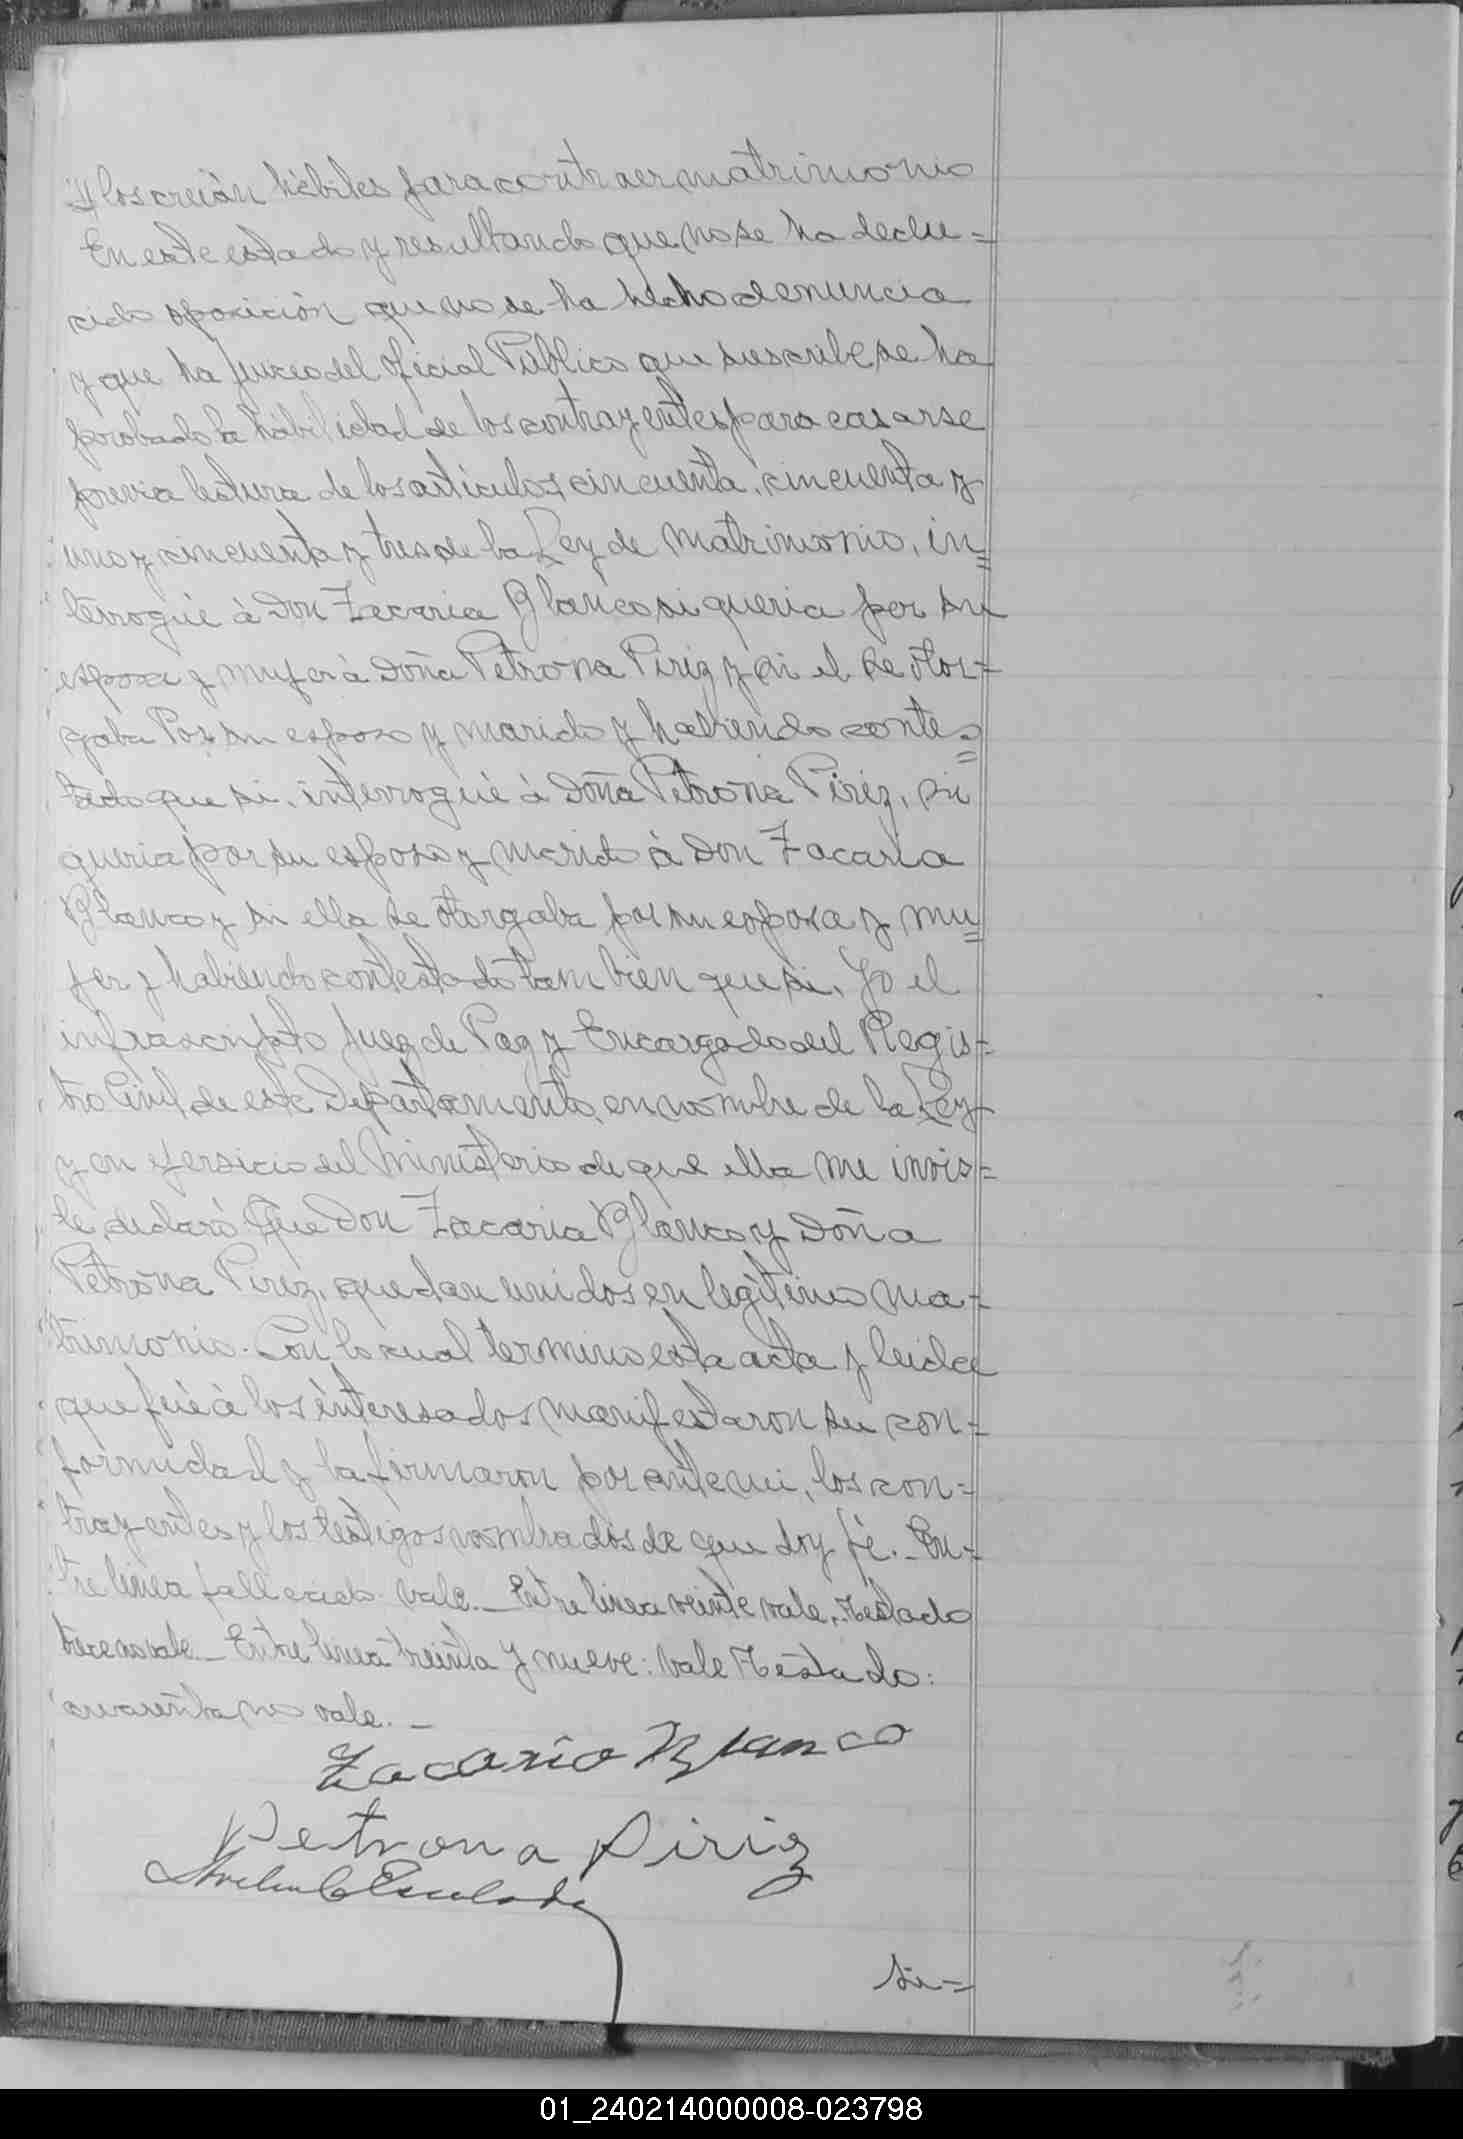 y los creian hábiles para contraer matrimonio
En este estado y resultando que no se ha dedu=
cido oposición que no se ha hecho denuncia
y que ha juicio del oficial Público que suscribe se ha
probado la habilidad de los contrayentes para casarse
previa lectura de los articulos cincuenta, cincuenta y
uno y cincuenta y tres de la Ley de Matrimonio, in=
terrogué à Don Zacaria Blanco si queria por su
esposa y mujer à Doña Petrona Piriz y si el se otor=
gaba Por su esposo y marido y habiendo contes=
tado que si, interrogué à Doña Petrona Piriz, si
queria por su esposo y marido à Don Zacaria
Blanco y si ella se otorgaba por su esposa y mu=
jer y habiendo contestado tambien que si, Yo el
infrascripto Juez de Paz y Encargado del Regis=
tro Civil de este Departamento, en nombre de la Ley
y en ejersicio del Ministerio de que ella me invis=
te, declaró Que Don Zacaria Blanco y Doña
Petrona Pirez, quedan unidos en legitimo ma=
trimonio. Con lo cual termino esta acta y leida
que fué à los interesados manifestaron su con=
formidad y la firmaron por ante mi, los con=
trayentes y los testigos nombrados de que doy fé. En=
tre linea fallecido vale. Entre linea veinte vale. Testado
trece no vale. Entre linea treinta y nueve: vale Testado:
cuarenta no vale.
Zacario Blanco
Petrona Piriz
si=
01_240214000008-023798